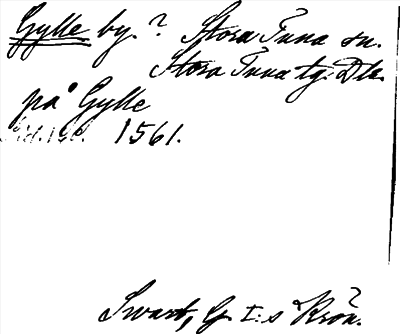 Gylle by.? Stora Tuna sn.
Stora Tuna tg. Dla.
på Gylle
1561.
Swart, G. I:s Krön.